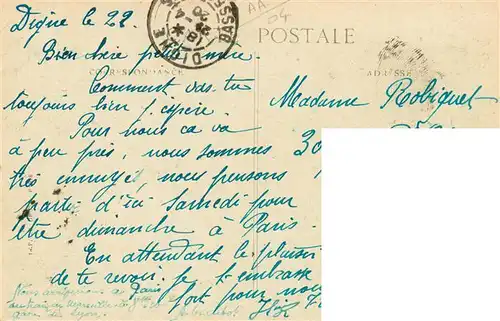 Digne le 22.
POSTALE
Bien chère petite mère
CORRESPONDANCE
ADRESSE
Comment vas-tu
toujours bien j'espère.
Madame Robiquet
Pour nous ça va
à peu près, nous sommes
30
très ennuyés, nous pensons
partir d'ici Samedi pour
être dimanche à Paris.
En attendant le plaisir
de te revoir je t'embrasse
fort pour nous
Nous arriverons à Paris
gare de Lyon.
DIGNE